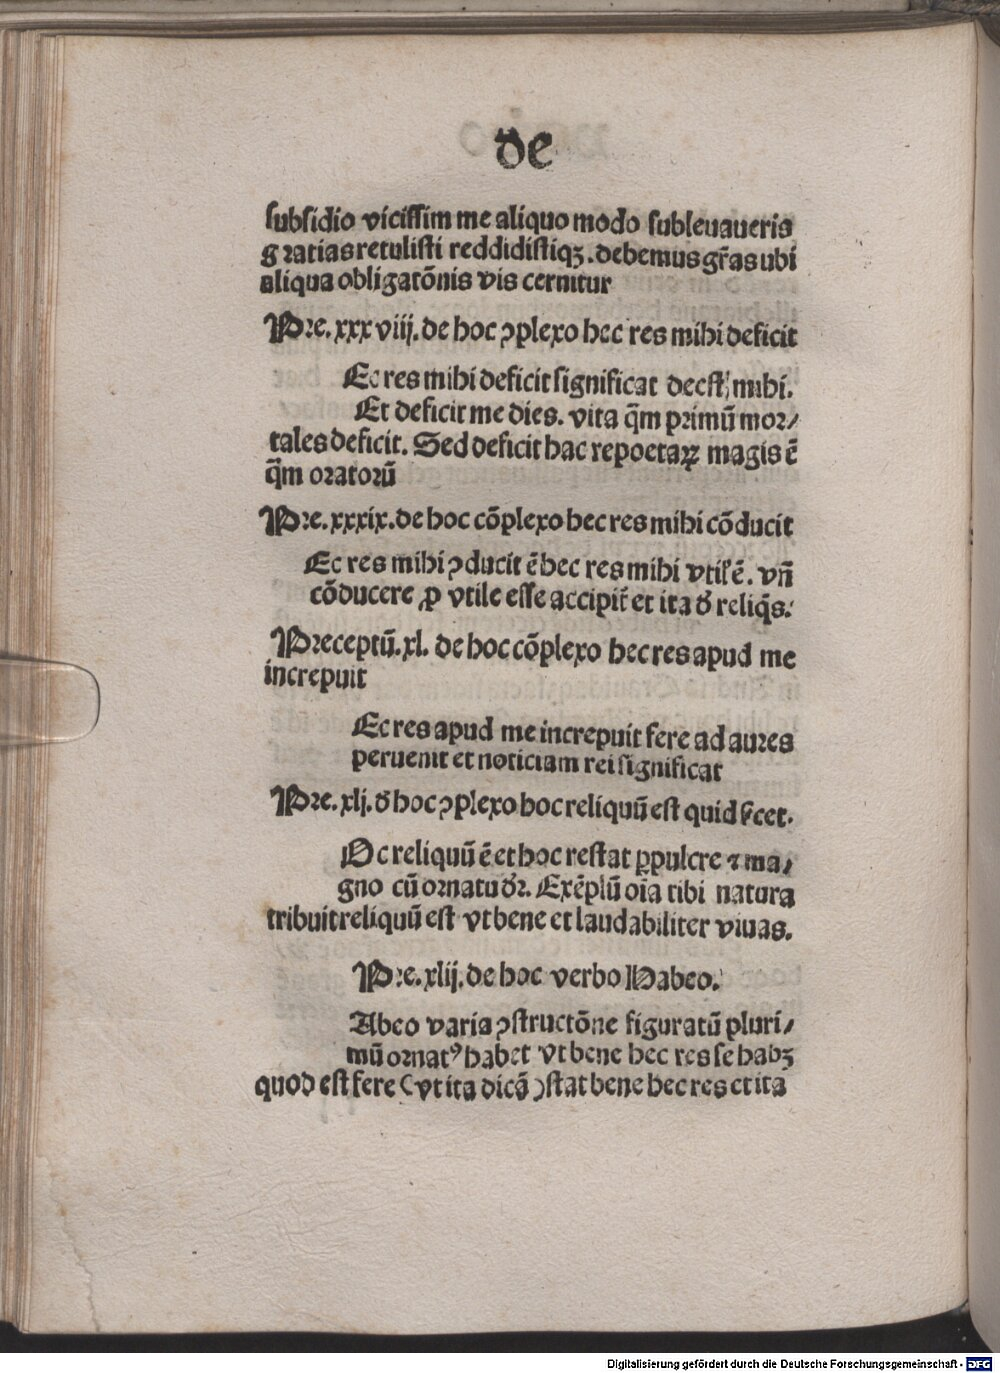 de
subsidio vicissim me aliquo modo subleuaueris
gratias retulisti reddidistiqꝫ. debemus gr̃as ubi
aliqua obligatōnis vis cernitur
Pre. xxxviij. de hoc ꝯplexo hec res mihi deficit
Ec res mihi deficit significat deest mihi.
Et deficit me dies. vita q̄m primū mor/
tales deficit. Sed deficit hac re poetaꝝ magis ē
q̄m oratorū
Pre. xxxix. de hoc cōplexo hec res mihi cōducit
Ec res mihi ꝯducit ē hec res mihi vtil' ē. vñ
cōducere ꝓ vtile esse accipit̄ et ita d' reliq̄s.
Preceptū. xl. de hoc cōplexo hec res apud me
increpuit
Ec res apud me increpuit fere ad aures
peruenit et noticiam rei significat
Pre. xlj. d' hoc ꝯplexo hoc reliquū est quid
Oc reliquū ē et hoc restat ꝑpulcre ⁊ ma/
gno cū ornatu dr̄. Exēplū oīa tibi natura
tribuit reliquū est vt bene et laudabiliter viuas.
Pre. xlij. de hoc verbo Habeo.
Abeo varia ꝯstructōne figuratū pluri/
mū ornatꝰ habet vt bene hec res se habꝫ
quod est fere (vt ita dicā) stat bene hec res et ita
Digitalisierung gefördert durch die Deutsche Forschungsgemeinschaft - DFG